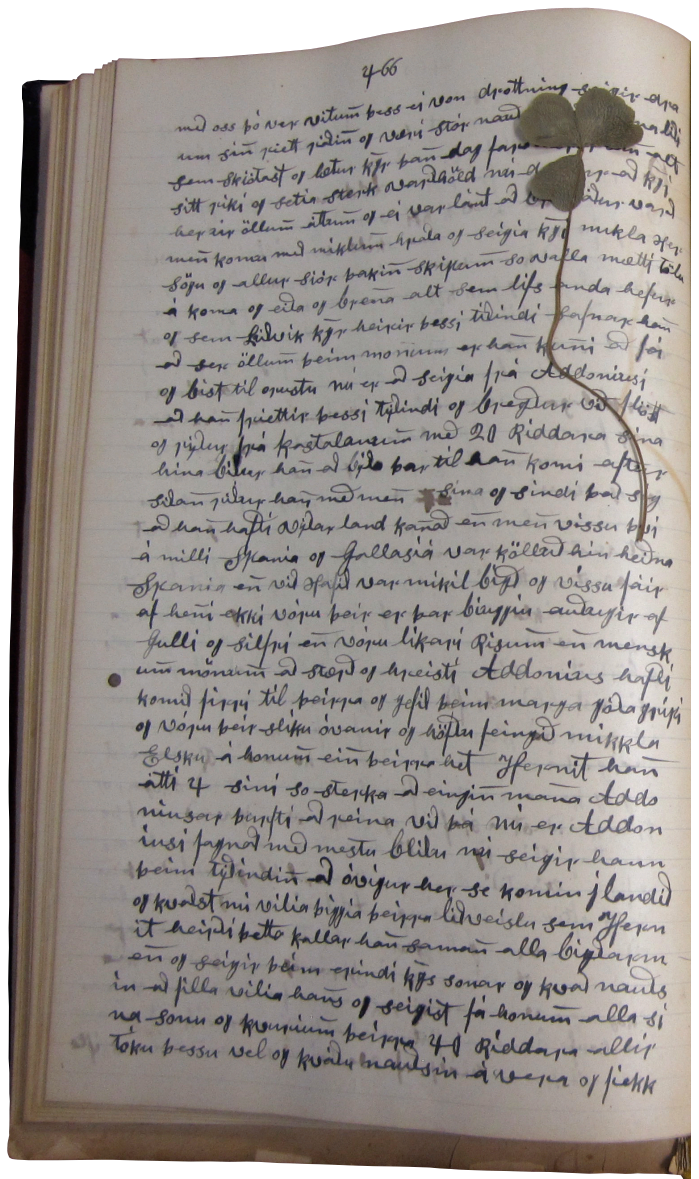 466
með oss þó ver vitum þess ei von drottning seigir dra
um sin riett riðin og veri stór nauð
sem skiótast og letur kgr þan dag alt
sitt riki og setia sterk varðhöld nú að kgr
her air öllum áttum og ei var lánt að varð
men komu með miklum hraða og seigia kgi mikla her
sögu og allur siór þakin skipum so valla mætti tölu
á koma og eiða og brena alt sem lifs anda hefur
og sem Lúðvik kgr heirir þessi tiðindi safnar han
að ser öllum þeim monum er han kuni að fá
og bíst til orustu nú er að seigia frá Addoniusi
að han friettir þessi tyðindi og bregður við
og riður frá kastalanum með 20 Riddara sina
hina biður han að biða þar til han komi aftur
siðan riður han með men sina og sindi það sig
að han hafði viðar land kanað en men vissu þvi
á milli Skania og Gallasiá var kölluð hin heiðna
Skania en við Hafið var mikil bigð og vissu fáir
af heni ekki vóru þeir er þar biuggiu auðugir af
Gulli og silfri en vóru likari Risum en mensk
um mönum að stærð og hreisti Addonius hafði
komið firri til þeirra og gefið þeim marga góða gripi
og vóru þeir sliku óvanir og höfðu feingið mikkla
Elsku á honum ein þeirra het Hernit han
átti 4 sini so sterka að eingin mana Addo
niusar þurfti að reina við þá nú er Addon
iusi fagnað með mestu bliðu nú seigir hann
þeim tyðindin að óvigur her se komin j landið
og kvaðst nú vilia þiggia þeirra liðveislu sem Hern
it heirði þetta kallar han saman alla bigðarm
en og seigir þeim erindi kgs sonar og kvað nauðs
in að filla vilia hans og seigist fá honum alla si
na sonu og kvurium þeirra 40 Riddara allir
tóku þessu vel og kváðu nauðsin á vera og fiekk